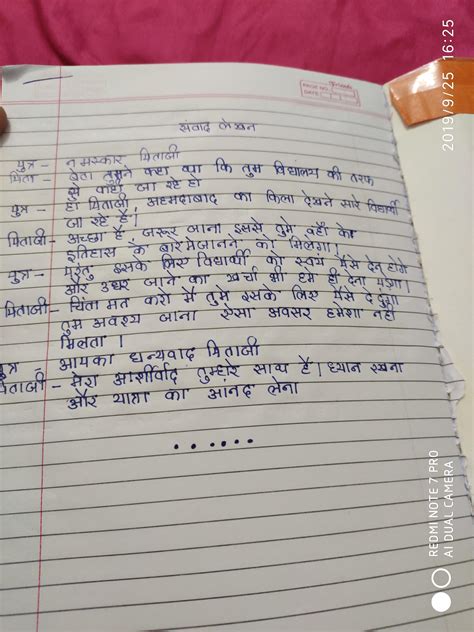 संवाद लेखन
पुत्र - नमस्कार पिताजी
पिता - बेटा तुमने कहा था कि तुम विद्यालय की तरफ
से कहीं जा रहे हो
पुत्र - हाँ पिताजी अहमदाबाद का किला देखने सारे विद्यार्थी
जा रहे है।
पिताजी - अच्छा है जरूर जाना इससे तुम्हे वहाँ के
इतिहास के बारे में जानने को मिलगा।
पुत्र - परंतु इसके लिए विद्यार्थी को स्वयं पैसे देने होंगे
और उधर जाने का खर्चा भी हमे ही देना पड़ेगा।
पिताजी - चिंता मत करो मैं तुमे इसके लिए पैसे दे दुगा
तुम अवश्य जाना ऐसा अवसर हमेशा नहीं
मिलता।
पुत्र आपका धन्यवाद पिताजी
पिताजी - मेरा आशीर्वाद तुम्हारे साथ है। ध्यान रखना
और यात्रा का आनंद लेना
PAGE NO.
DATE
2019/9/25 16:25
REDMI NOTE 7 PRO
AI DUAL CAMERA